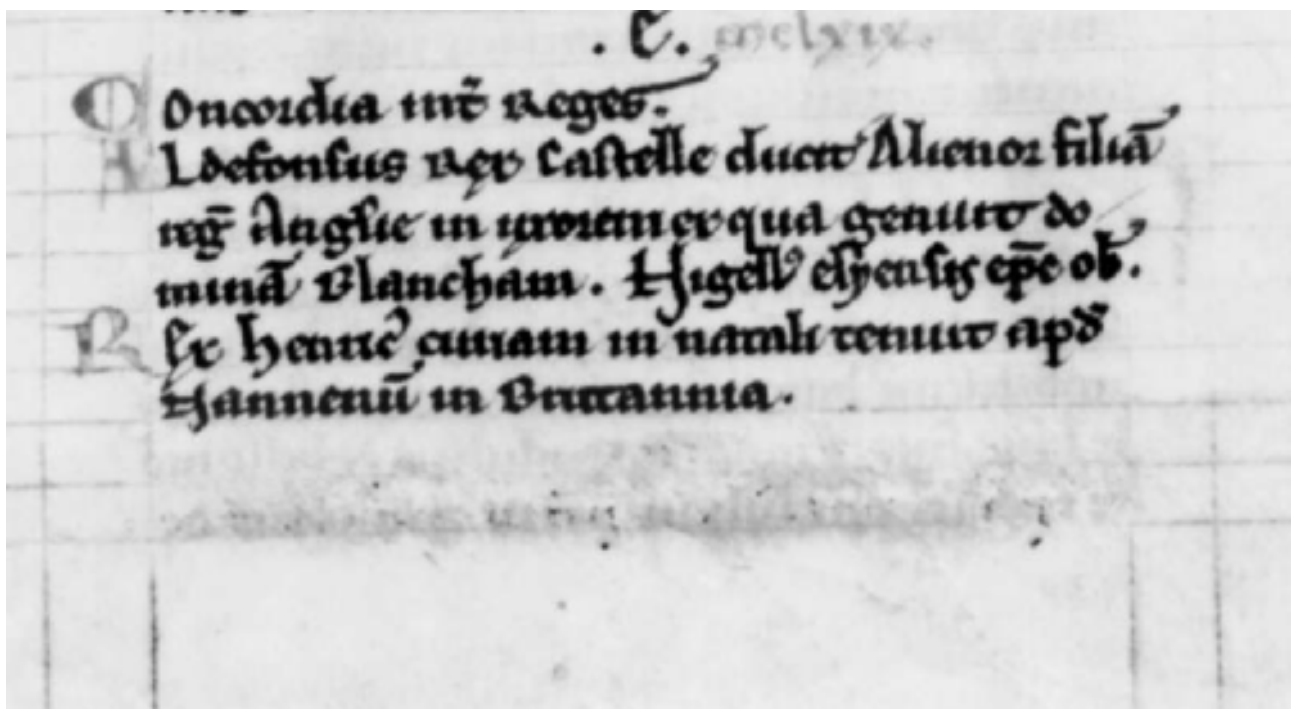 .E. mclxix.
Concordia int̄ Reges.
Aldefonsus Rex Castelle duxit Alienor filiā
reḡ Anglie in uxorem ex qua genuit do
minā Blancham. Nigell᾽ elyensis ep̄c ob̄.
Rex henric᾽ curiam in natali tenuit apđ
Nannetū in Brittannia.